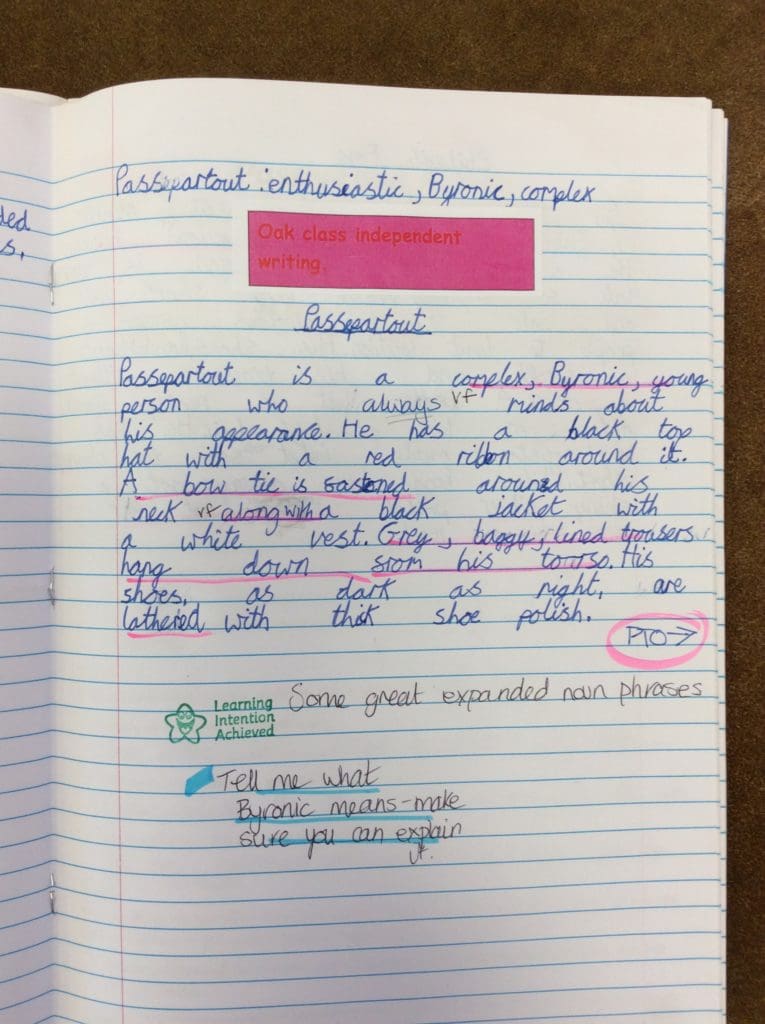 ded
s,
Passepartout : enthusiastic, Byronic, complex
Oak class independent
writing.
Passepartout
Passepartout is a complex, Byronic, young
person who always vf minds about
his appearance. He has a black top
hat with a red ribbon around it.
A bow tie is fastened around his
neck vf along with a black jacket with
a white vest. Grey, baggy, lined trousers
hang down from his torrso. His
shoes, as dark as night, are
lathered with thick shoe polish.
PTO→
Learning
Intention
Achieved
Some great expanded noun phrases
Tell me what
Byronic means-make
sure you can explain
it.